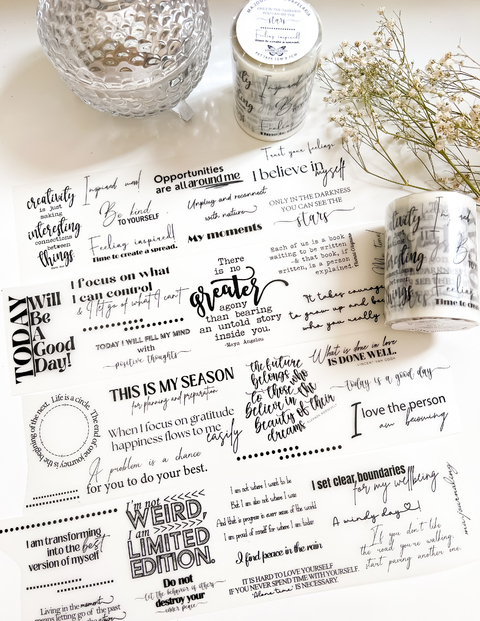 stars
Feeling inspired!
Time to create a spread.
creativity
is just
making
interesting
connections
between
things.
Inspired mood
Be kind
TO YOURSELF
Feeling inspired!
Time to create a spread.
Opportunities
are all around me
Unplug and reconnect
with nature
My moments
Trust your feelings
I believe in myself
ONLY IN THE DARKNESS
YOU CAN SEE THE
stars
Each of us is a book
waiting to be written
- & that book, if
written, is a person
explained
TODAY
Will
Be
A
Good
Day!
I focus on what
I can control
& I let go of what I can't
TODAY I WILL FILL MY MIND
with
positive thoughts
There
is no
greater
agony
than bearing
an untold story
inside you.
-Maya Angelou
It takes courage
to grow up and
who you really
Life is a circle. The end of one journey is the beginning of the next.
THIS IS MY SEASON
for planning and preparation
When I focus on gratitude
happiness flows to me easily
A problem is a chance
for you to do your best.
the future
belongs
to those who
believe in the
beauty of their
dreams
What is done in love
IS DONE WELL.
VINCENT VAN GOGH
today is a good day
I love the person
I am becoming
I am transforming
into the best
version of myself
I'm not
WEIRD,
I am
LIMITED
EDITION.
Do not
let the behavior of others
destroy your
inner peace
I am not where I want to be
But I am also not where I was
And that is progress in every sense of the word
I am proud of myself for where I am today
I find peace in the rain.
IT IS HARD TO LOVE YOURSELF
IF YOU NEVER SPEND TIME WITH YOURSELF.
"Alone time" IS NECESSARY.
I set clear boundaries
for my wellbeing
A windy day
If you don't like
the road you're walking,
start paving another one.
Living in the moment
means letting go of the past